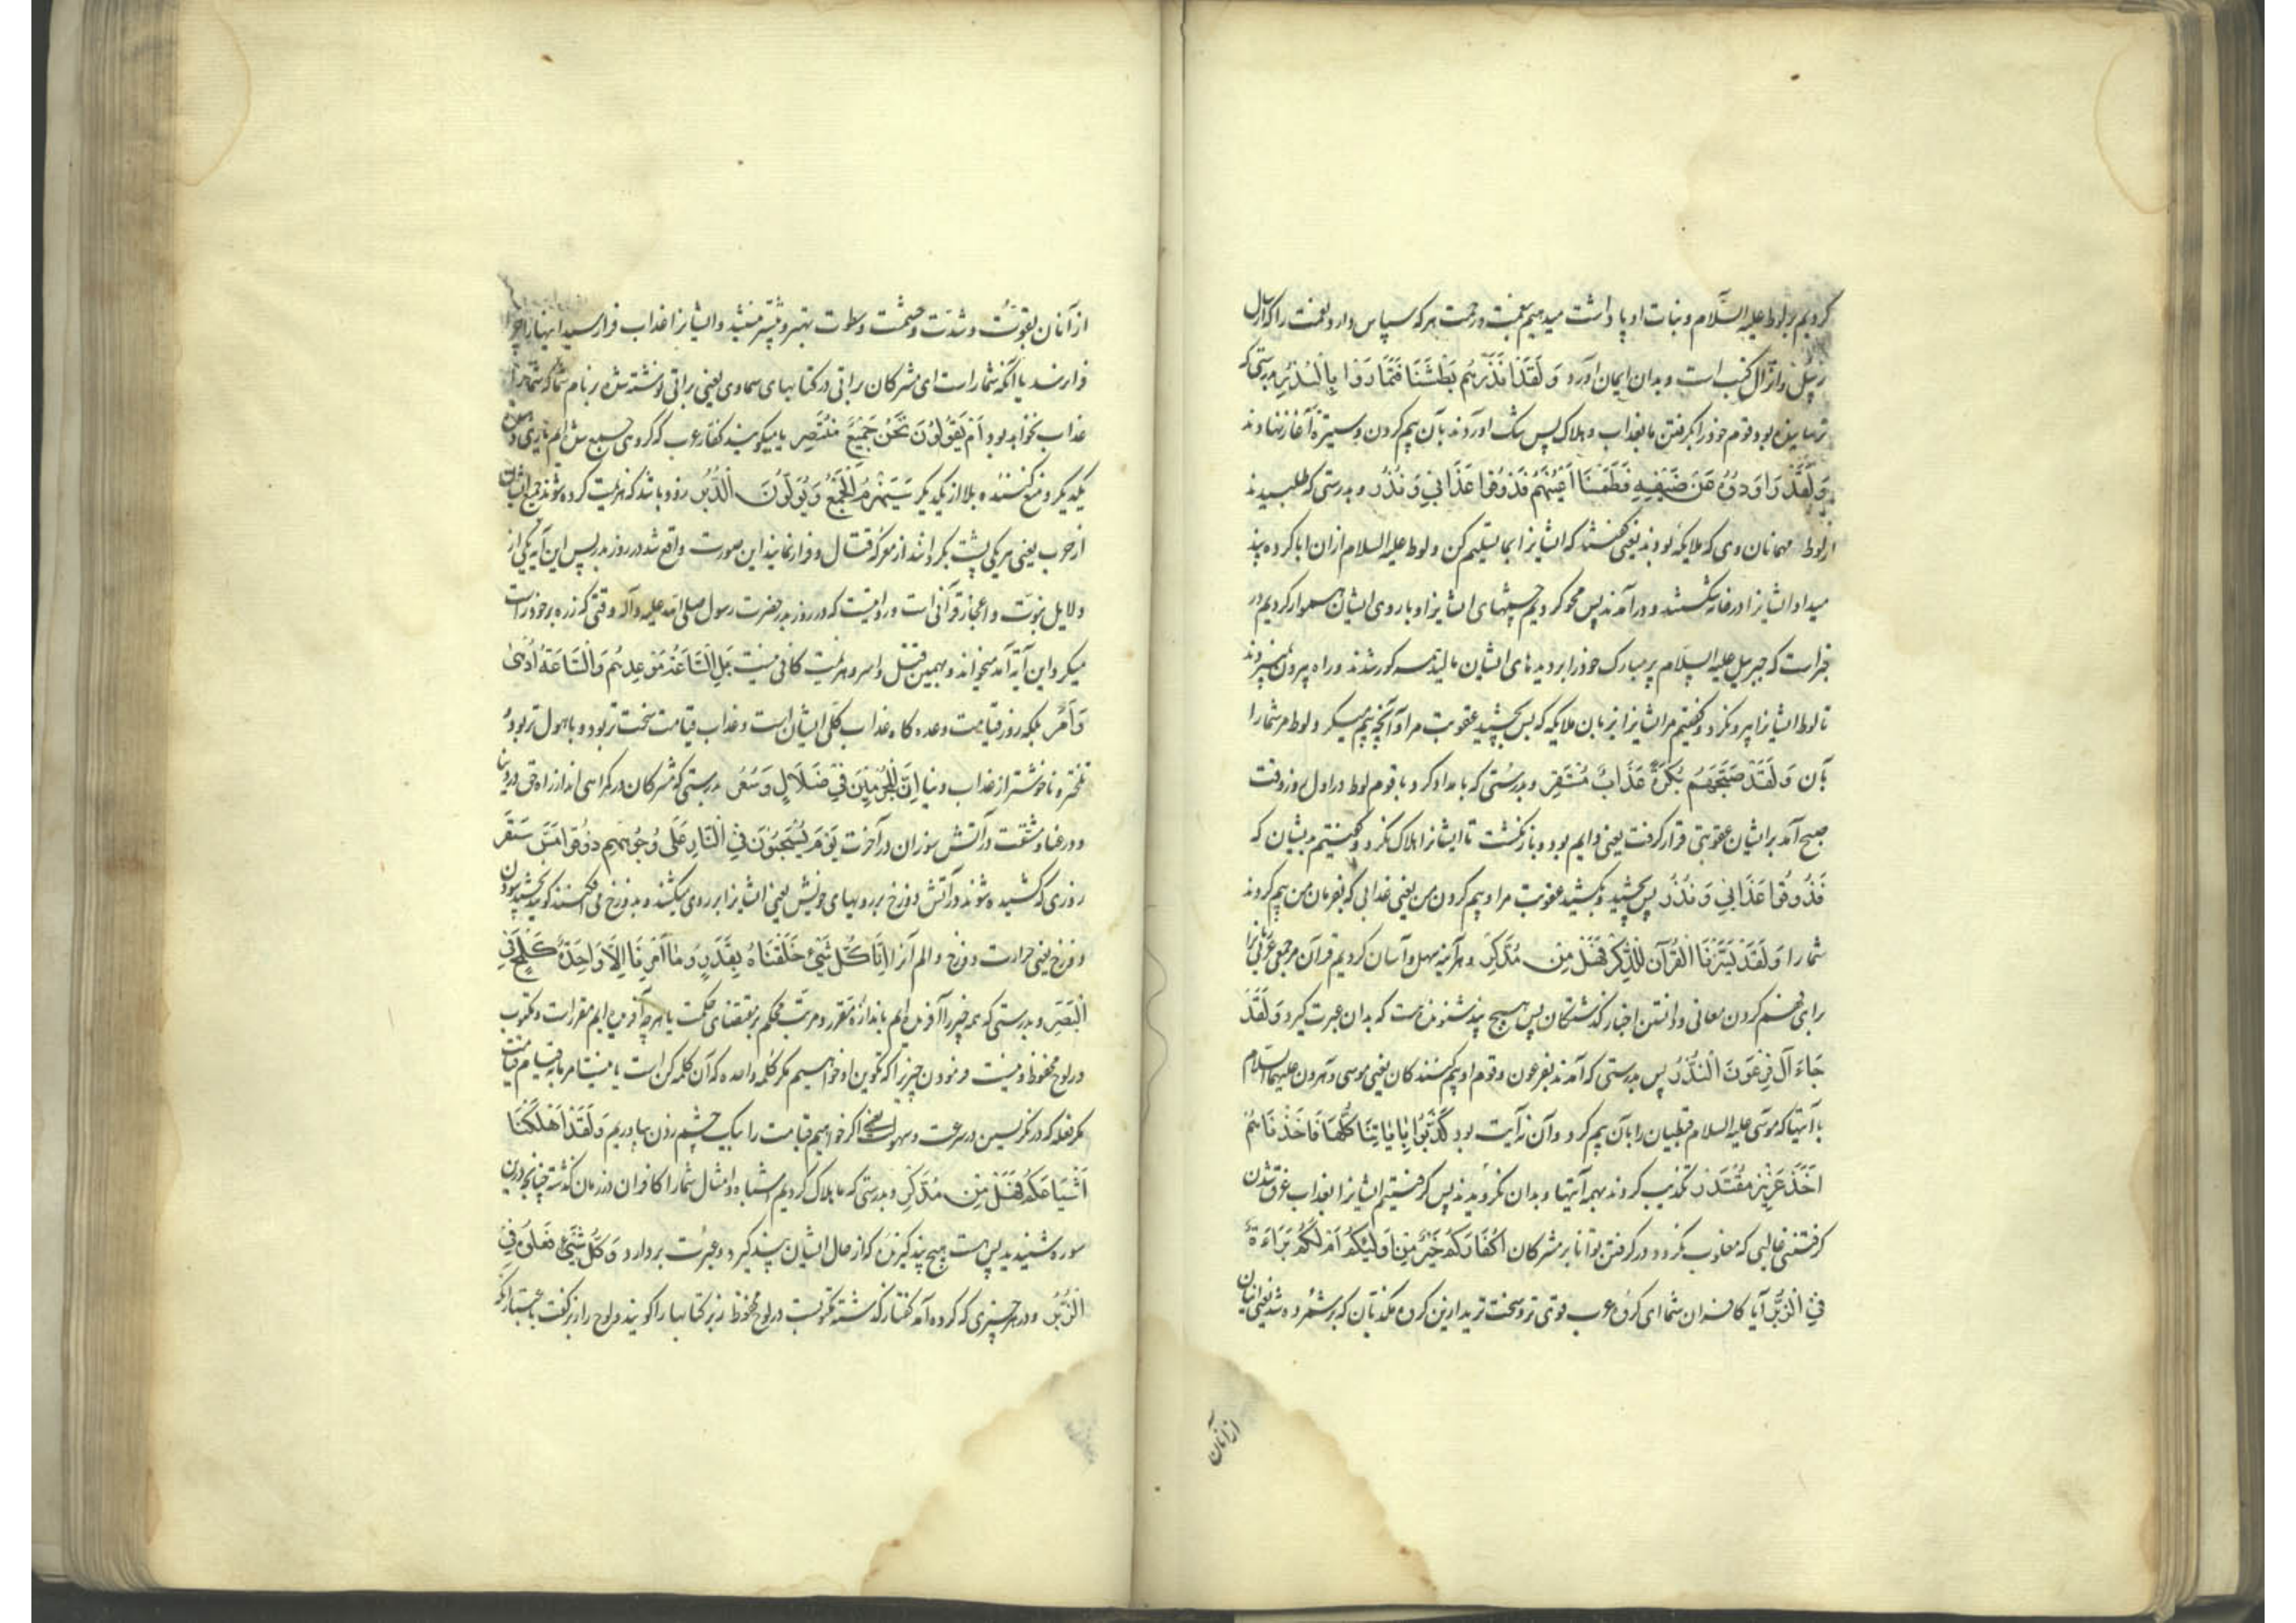 کردیم بر لوط علیه السّلام و بنات او پاداشت میدهیم بنعمت و رحمت هر که سپاس دارد نعمت را که ارسال
رسل و انزال کتب است و بدان ایمان آورد وَلَقَدْ اَنْذَرَهُم بَطْشَتَنَا فَتَمَارَوْا بِالنُّذُرِ بدرستی که
ترساینده بود قوم خود را بگرفتن ما بعذاب و هلاک پس شک آوردند بآن بیم کردن و ستیزه آغاز نهادند
وَلَقَدْ رَاوَدُوهُ عَنْ ضَیْفِهِ فَطَمَسْنَا اَعْیُنَهُمْ فَذُوقُوا عَذَابِی وَنُذُرِ و بدرستی که طلبیدند
از لوط مهمانان وی که ملایکه بودند یعنی گفتند که ایشانرا بما تسلیم کن و لوط علیه السلام از ان ابا کرده پند
میداد ایشانرا در خانه بشکستند و درآمدند پس محو کردیم چشمهای ایشانرا و با روی ایشان هموار کردیم در
خبر است که جبریل علیه السّلام پر مبارک خود را بر دیدهای ایشان مالید همه کور شدند و راه بیرون نمیبردند
تا لوط ایشانرا بیرون کرد و گفتیم مر ایشانرا بزبان ملایکه که پس بچشید عقوبت مرا و آنچه بیم میکرد لوط مر شما را
بآن وَلَقَدْ صَبَّحَهُمْ بُکْرَةً عَذَابٌ مُسْتَقِر و بدرستی که بامداد کرد با قوم لوط در اول روز وقت
صبح آمد بر ایشان عقوبتی قرار گرفت یعنی دایم بود و باز نگشت تا ایشانرا هلاک نکرد و گفتیم بدیشان که
فَذُوقُوا عَذَابِی وَنُذُرِ پس بچشید و بکشید عقوبت مرا و بیم کردن من یعنی عذابی که بفرمان من بیم کردند
شما را وَلَقَدْ یَسَّرْنَا الْقُرْآنَ لِلذِّکْرِ فَهَلْ مِن مُدَّکِر و هر آینه سهل و آسان کردیم قرآن
برای فهم کردن معانی و دانستن اخبار گذشتگان پس هیچ پند شنونده هست که بدان عبرت گیرد وَلَقَدْ
جَاءَ آلَ فِرْعَوْنَ النُّذُرُ پس بدرستی که آمدند بفرعون و قوم او بیم کنندگان یعنی موسی و هرون علیهما السلام
با آیتها که موسی علیه السلام قبطیان را بآن بیم کرد و آن نه آیت بود کَذَّبُوا بِآیَاتِنَا کُلِّهَا فَاَخَذْنَاهُمْ
اَخْذَ عَزِیزٍ مُقْتَدِر تکذیب کردند بهمه آیتها و بدان نگرویدند پس گرفتیم ایشانرا بعذاب غرق شدن
گرفتنی غالبی که مغلوب نگردد در گرفتن توانا بر مشرکان اَکُفَّارُکُمْ خَیْرٌ مِنْ اُولٰئِکُمْ اَمْ لَکُمْ بَرَاءَةٌ
فِی الزُّبُرِ آیا کافران شما ای گروه عرب قوی تر و سخت ترید از ین گروه مکذبان که بر شمرده شد
از آنان
از آنان بقوّت و شدّت و حشمت و سطوت بهتر و بیشتر نیستند و ایشانرا عذاب فرا رسید اینها را چرا
فرا رسد یا آنکه شما راست ای مشرکان براتی در کتابهای سماوی یعنی براتی نوشته شده بر نام شما که شما را
عذاب نخواهد بود اَمْ یَقُولُونَ نَحْنُ جَمِیعٌ مُنْتَصِر یا میگویند کفّار عرب که گروهی جمیع شده ایم
یکدیگر و منع کننده بلا از یکدیگر سَیُهْزَمُ الْجَمْعُ وَیُوَلُّونَ الدُّبُر زود باشد که هزیمت کرده شوند جمع ایشان
از حرب یعنی هریکی پشت بگرداند از معرکه قتال و فرار نمایند این صورت واقع شد در روز بدر پس این آیه یکی از
دلایل نبوّت و اعجاز قرآنی است و روایتیست که در روز بدر حضرت رسول صلی الله علیه و آله وقتی که زره بر خود راست
میکرد این آیه آمد میخواند و بهمین قتل و اسر و هزیمت کافی نیست بَلِ السَّاعَةُ مَوْعِدُهُمْ وَالسَّاعَةُ اَدْهٰی
وَاَمَرُّ بلکه روز قیامت وعده گاه عذاب کلّی ایشان است و عذاب قیامت سخت تر بود و با هول تر بود و
تلختر و ناخوشتر از عذاب دنیا اِنَّ الْمُجْرِمِینَ فِی ضَلَالٍ وَسُعُر بدرستی که مشرکان در گمراهی اند از راه حق در دنیا
و در عنا و مشقت در آتش سوزان در آخرت یَوْمَ یُسْحَبُونَ فِی النَّارِ عَلَی وُجُوهِهِم ذُوقُوا مَسَّ سَقَرَ
روزی که کشیده شوند در آتش دوزخ بر رویهای خویش یعنی ایشانرا بر روی میکشند و بدوزخ می افکنند گویند بچشید سودن
دوزخ یعنی حرارت دوزخ و الم آنرا اِنَّا کُلَّ شَیْءٍ خَلَقْنَاهُ بِقَدَرٍ وَمَا اَمْرُنَا اِلَّا وَاحِدَةٌ کَلَمْحٍ
الْبَصَرِ و بدرستی که همه چیز را آفریده ایم باندازه مقرر و مرتّب محکم بر مقتضای حکمت یا هر چه آفریده ایم مقرر است و مکتوب
در لوح محفوظ و نیست فرمودن چیزی را که تکوین او خواهیم مگر کلمه واحده که آن کلمه کن است یا نیست امر ما بقیام قیامت
مگر فعله که در نگریستن در سرعت و سهولت یعنی اگر خواهیم قیامت را بیک چشم زدن بیاوریم وَلَقَدْ اَهْلَکْنَا
اَشْیَاعَکُمْ فَهَلْ مِن مُدَّکِر و بدرستی که ما هلاک کردیم اشباه و امثال شما را کافران در زمان گذشته چنانچه درین
سوره شنیدید پس هست هیچ پند گیرنده که از حال ایشان پند گیرد و عبرت بردارد وَکُلُّ شَیْءٍ فَعَلُوهُ فِی
الزُّبُر و در هر چیزی که کرده آمد کفّار گذشته مکتوبست در لوح محفوظ زبر کتابها را گویند و لوح را زبر گفت باعتبار آنکه